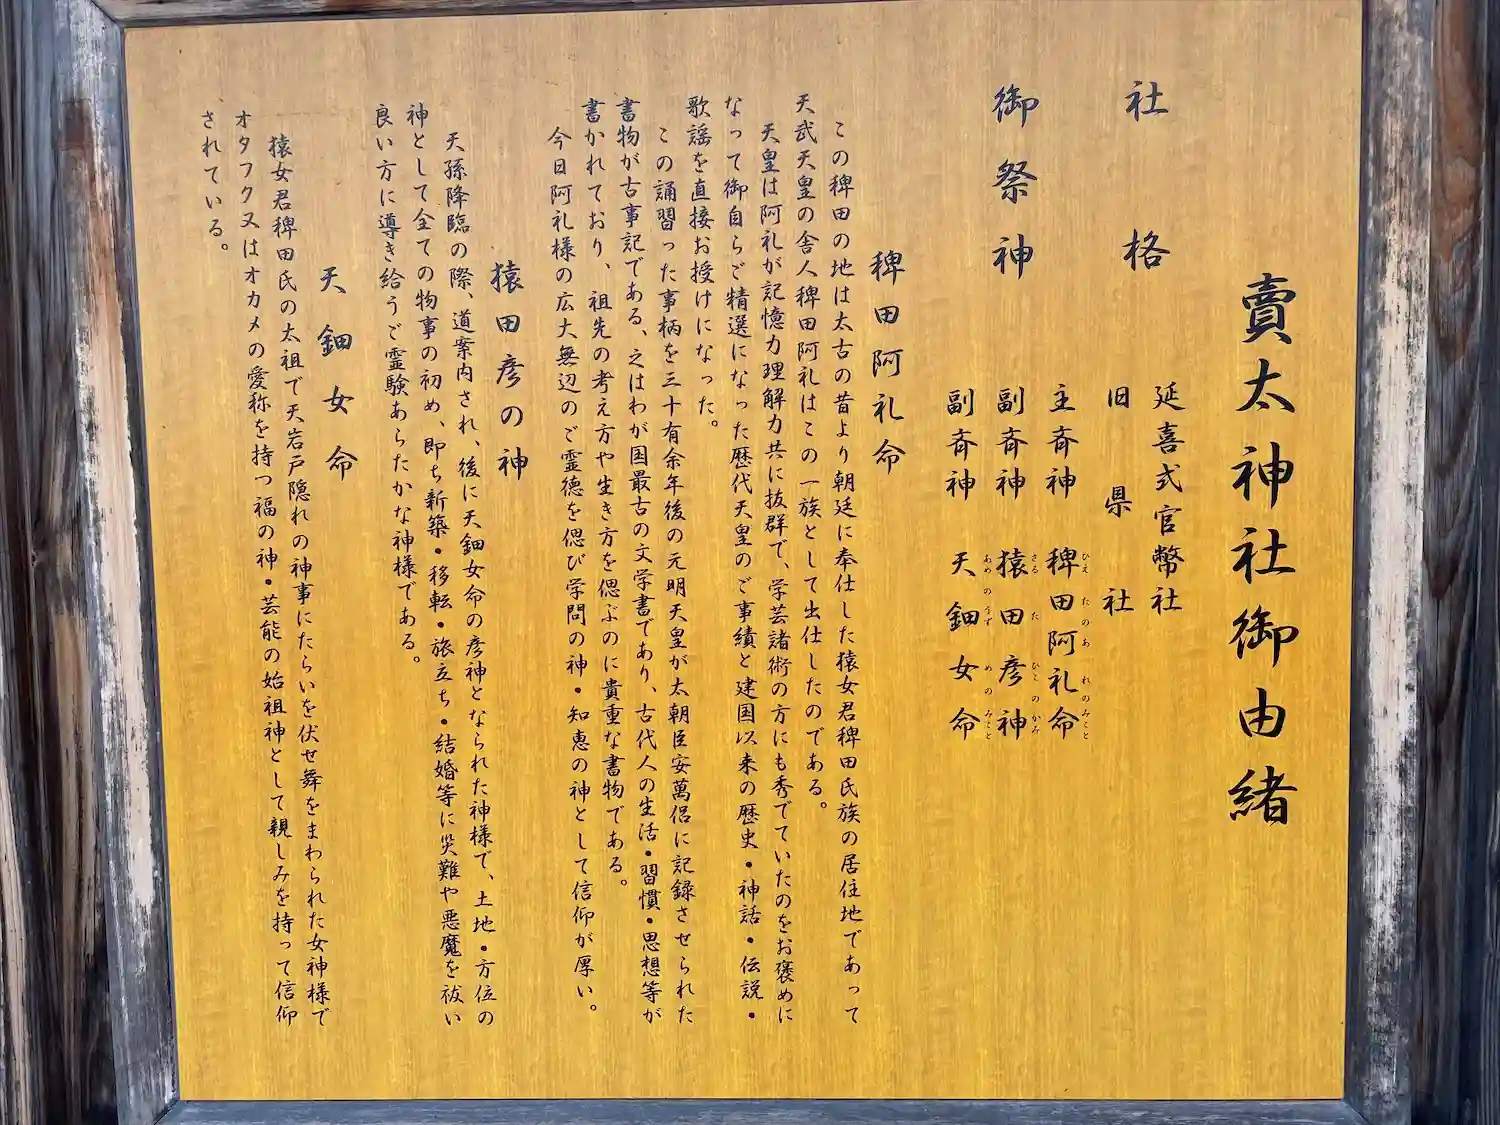 賣太神社御由緒
社格
延喜式官幣社
旧県社
御祭神
主斉神 稗田阿礼命
ひえ たのあ れのみこと
副斉神 猿田彦神
さる た ひこのかみ
副斉神 天鈿女命
あめのうず めのみこと
稗田阿礼命
この稗田の地は太古の昔より朝廷に奉仕した猿女君稗田氏族の居住地であって
天武天皇の舎人稗田阿礼はこの一族として出仕したのである。
天皇は阿礼が記憶力理解力共に抜群で、学芸諸術の方にも秀でていたのをお褒めに
なって御自らご精選になった歴代天皇のご事績と建国以来の歴史・神話・伝説・
歌謡を直接お授けになった。
この誦習った事柄を三十有余年後の元明天皇が太朝臣安萬侶に記録させられた
書物が古事記である、之はわが国最古の文学書であり、古代人の生活・習慣・思想等が
書かれており、祖先の考え方や生き方を偲ぶのに貴重な書物である。
今日阿礼様の広大無辺のご霊徳を偲び学問の神・知恵の神として信仰が厚い。
猿田彦の神
天孫降臨の際、道案内され、後に天鈿女命の彦神となられた神様で、土地・方位の
神として全ての物事の初め、即ち新築・移転・旅立ち・結婚等に災難や悪魔を祓い
良い方に導き給うご霊験あらたかな神様である。
天鈿女命
猿女君稗田氏の太祖で天岩戸隠れの神事にたらいを伏せ舞をまわられた女神様で
オタフク又はオカメの愛称を持つ福の神・芸能の始祖神として親しみを持って信仰
されている。